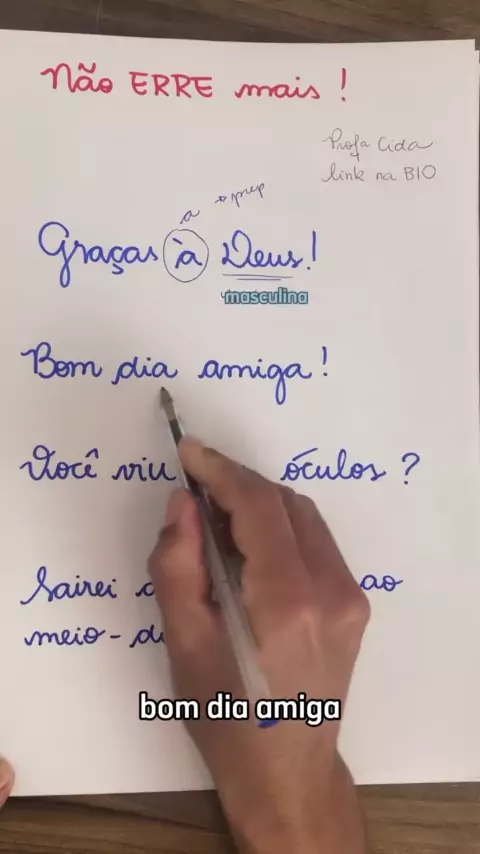 Não ERRE mais!
Profa Cida
link na BIO
a
prep
Graças à Deus!
masculina
Bom dia amiga!
Você viu óculos?
Sairei ao
meio-di
bom dia amiga